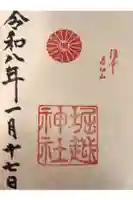 令和八年一月十七日
堀越
神社